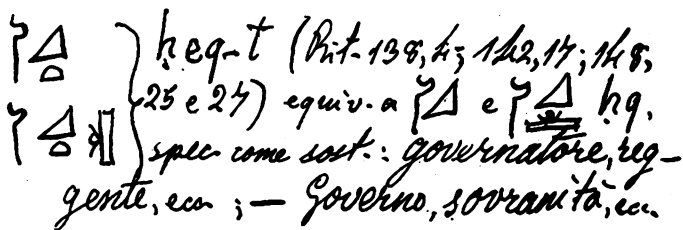 𓋾𓈎𓏏 } ḥeq-t (Rit. 138, 4; 142, 17; 148,
𓋾𓈎𓏏 25 e 27) equiv. a 𓋾𓈎 e 𓋾𓈎 ḥq,
spec. come sost.: governatore, reg-
gente, ecc. ; — Governo, sovranità, ecc.